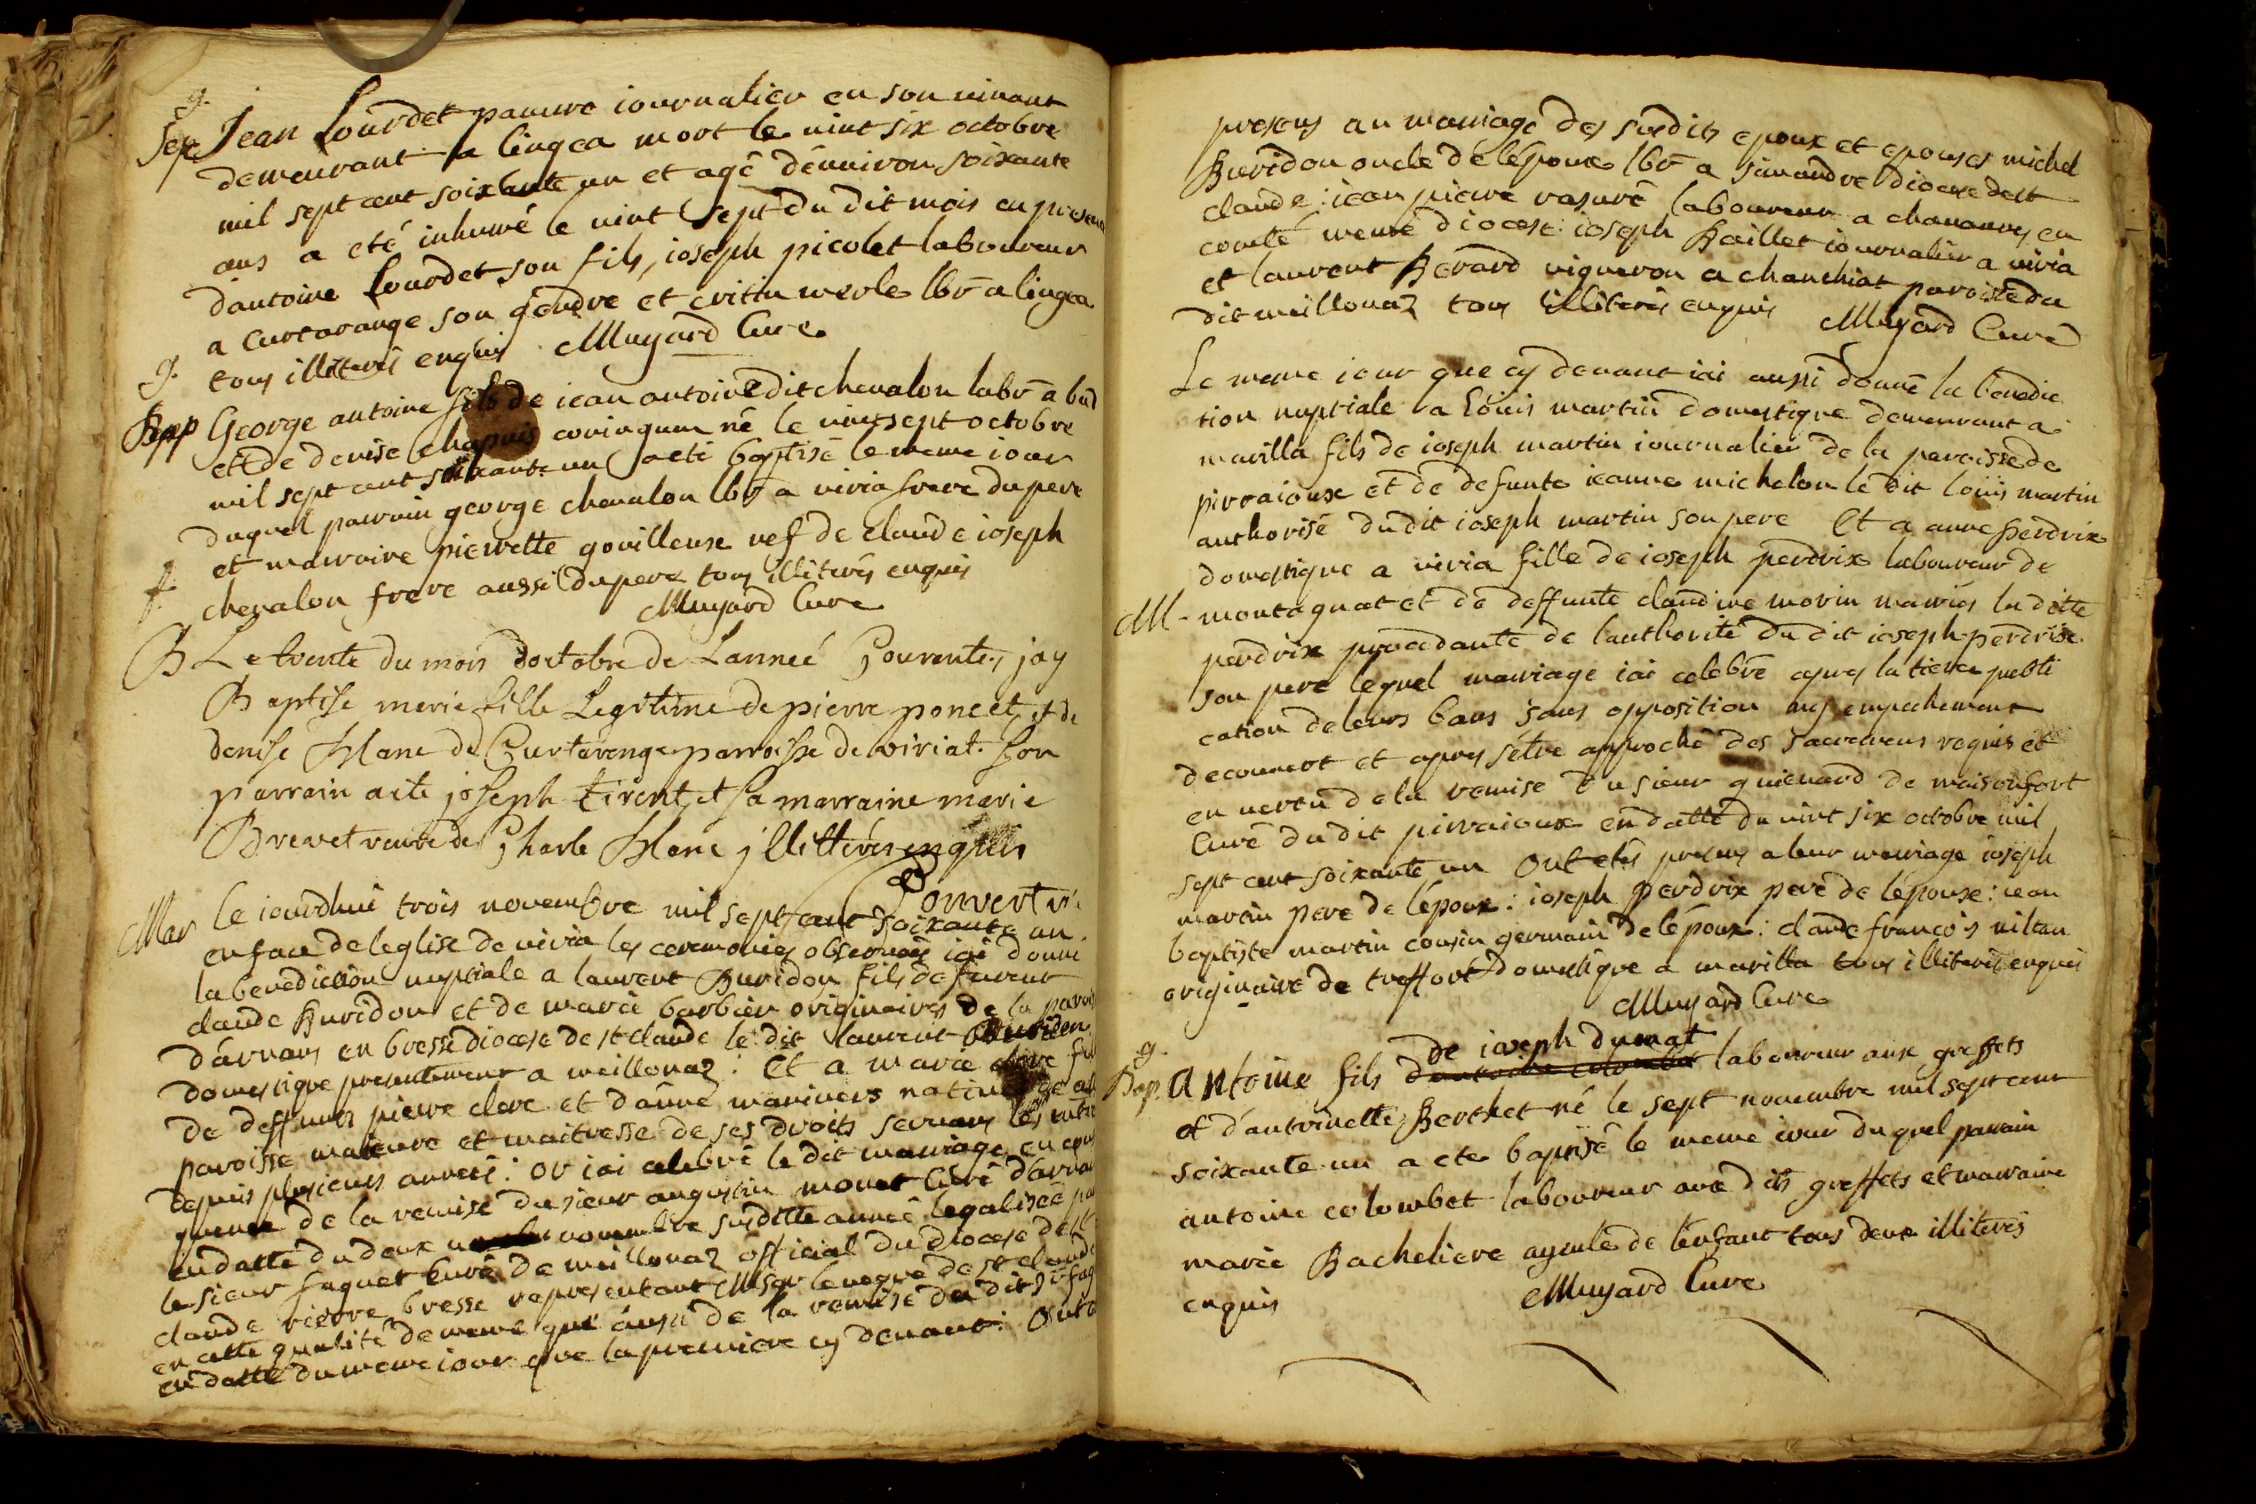 g.
Sep Jean Lourdet pauure iournalier en son uiuant
demeurant a lingea mort le uint six octobre
mil sept cent soixante un et agé dénuiron soixante
ans a eté inhumé le uint sept du dit mois en presence
dantoine Lourdet son fils, ioseph picolet laboureur
a curtarange son gendre et critin merle lbr a lingea
tous illiterés enquis Muyard Curé
g.
Bap George antoine fils de iean antoine dit cheualon labr a
et de denise chapuis né le uint sept octobre
mil sept cent soixante un a eté baptisé le meme iour
duquel parrain george cheualon lbr a uiria frere du pere
et marraine pierrette gouilleuse uef de claude ioseph
f.
cheualon frere aussi du pere tous illiterés enquis
Muyard Curé
B Le trente du mois doctobre de Lanneé Courente, jay
Baptisé marie fille Legitime de pierre poncet et de
denise blanc de Curtarenge parroisse de viriat. Son
parrain a ite joseph tirent et sa marraine marie
Brevet veuve de Charle blanc jllitterés enquis
Mar le iourdhui trois nouembre mil sept cent soixante un
en face de leglise de uiria les ceremonies obseruées iai donné
la benediction nuptiale a laurent Buridon fils de furent
claude Buridon et de marie barbier originaires de la parois
darnans en bresse diocese de st claude le dit laurent Buridon
domestique presentement a meillonaz : Et a marie clere fille
de deffunts pierre clere et danne mariniers
paroisse maieure et maitresse de ses droits
depuis plusieurs années : or iai celebré le dit mariage en conse
quence de la remise du sieur augustin monet Curé darnans
en datte du deux nouembre susditte année legalisée par
le sieur faguet Curé de meillonaz official du diocese de st
claude pierre bresse representant Msgr leueque de st claude
en cette qualité de meme que aussi de la remise du dit sr fag
en datte du meme iour que la premiere cy deuant : Ont eté
presens au mariage des susdits epoux et epouses michel
Buridon oncle de lépoux lbr a simandre diocese de st
claude : iean pierre rasuré laboureur a chauannes en
comté meme diocese : ioseph Baillet iournalier a uiria
et laurent Berard uigneron a chanchiat paroisse du
dit meillonaz tous illiterés enquis Muyard Curé
Le meme iour que cy deuant iai aussi donné la benedic
tion nuptiale a Louis martin domestique demeurant a
marilla fils de ioseph martin iournalier de la paroisse de
pirraioux et de defunte ieanne michelon le dit louis martin
authorisé du dit ioseph martin son pere Et a anne perdrix
domestique a uiria fille de ioseph perdrix laboureur de
M - montagnat et de deffunte claudine morin mariés la ditte
perdrix procedante de lauthorité du dit ioseph perdrix
son pere lequel mariage iai celebré apres la tierce publi
cation de leurs bans sans opposition ny empechement
decouuert et apres sétre approché des sacremens requis et
en uertu de la remise du sieur guienard de maisonfort
Curé du dit pirraioux en datte du uint six octobre mil
sept cent soixante un Ont etés presens a leur mariage ioseph
martin pere de lépoux : ioseph perdrix pere de lépouse : iean
baptiste martin cousin germain de lépoux : claude francois uiltan
originaire de treffort domestique a marilla tous illiterés enquis
Muyard Curé
g.
de ioseph dumat
Bap. antoine fils dantoine colombet laboureur aux greffets
et dantoinette Berthet né le sept nouembre mil sept cent
soixante un a ete baptisé le meme iour duquel parrain
antoine colombet laboureur aux dits greffets et marraine
marie Bacheliere ayeule de lenfant tous deux illiterés
enquis Muyard Curé